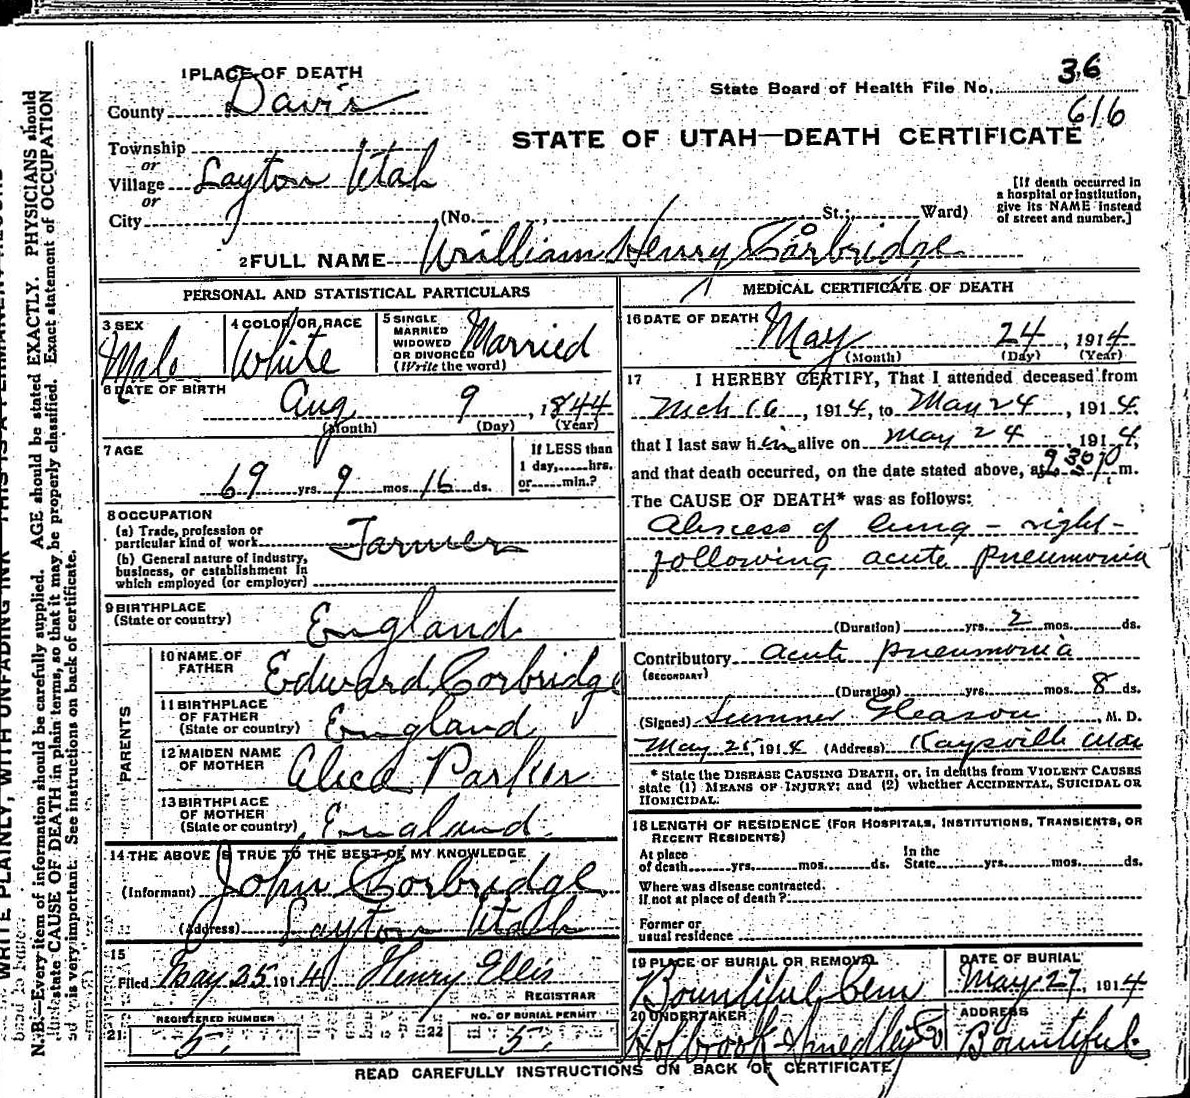 1 PLACE OF DEATH
County Davis
Township
or
Village Layton Utah
or
City (No. , St.; Ward)
36
State Board of Health File No.
616
STATE OF UTAH—DEATH CERTIFICATE
[If death occurred in
a hospital or institution,
give its NAME instead
of street and number.]
2 FULL NAME William Henry Corbridge
PERSONAL AND STATISTICAL PARTICULARS
3 SEX Male
4 COLOR OR RACE White
5 SINGLE
MARRIED
WIDOWED
OR DIVORCED
(Write the word)
Married
6 DATE OF BIRTH
Aug 9, 1844
(Month) (Day) (Year)
7 AGE
69 yrs. 9 mos. 16 ds.
If LESS than
1 day,......hrs.
or......min.?
8 OCCUPATION
(a) Trade, profession or
particular kind of work Farmer
(b) General nature of industry,
business, or establishment in
which employed (or employer)
9 BIRTHPLACE
(State or country) England
PARENTS
10 NAME OF
FATHER Edward Corbridge
11 BIRTHPLACE
OF FATHER
(State or country) England
12 MAIDEN NAME
OF MOTHER Alice Parker
13 BIRTHPLACE
OF MOTHER
(State or country) England
14 THE ABOVE IS TRUE TO THE BEST OF MY KNOWLEDGE
(Informant) John Corbridge
(Address) Layton Utah
15
Filed May 25 1914 Henry Ellis
REGISTRAR
21 REGISTERED NUMBER
5.
22 NO. OF BURIAL PERMIT
5.
MEDICAL CERTIFICATE OF DEATH
16 DATE OF DEATH
May 24, 1914
(Month) (Day) (Year)
17 I HEREBY CERTIFY, That I attended deceased from
Mch 16, 1914, to May 24, 1914.
that I last saw him alive on May 24, 1914,
and that death occurred, on the date stated above, at 9 30 p m.
The CAUSE OF DEATH* was as follows:
Abscess of lung - right -
following acute pneumonia
(Duration) yrs. 2 mos. ds.
Contributory acute pneumonia
(SECONDARY)
(Duration) yrs. mos. 8 ds.
(Signed) Sumner Gleason, M. D.
May 25, 1914 (Address) Kaysville Utah
* State the DISEASE CAUSING DEATH, or, in deaths from VIOLENT CAUSES
state (1) MEANS OF INJURY; and (2) whether ACCIDENTAL, SUICIDAL OR
HOMICIDAL.
18 LENGTH OF RESIDENCE (FOR HOSPITALS, INSTITUTIONS, TRANSIENTS, OR
RECENT RESIDENTS)
At place
of death......yrs......mos......ds.
In the
State......yrs......mos......ds.
Where was disease contracted.
if not at place of death?
Former or
usual residence
19 PLACE OF BURIAL OR REMOVAL
Bountiful Cem
DATE OF BURIAL
May 27, 1914
20 UNDERTAKER
Holbrook Smedley Co
ADDRESS
Bountiful.
READ CAREFULLY INSTRUCTIONS ON BACK OF CERTIFICATE
WRITE PLAINLY, WITH UNFADING INK
N.B.—Every item of information should be carefully supplied. AGE should be stated EXACTLY. PHYSICIANS should
state CAUSE OF DEATH in plain terms, so that it may be properly classified. Exact statement of OCCUPATION
is very important. See instructions on back of certificate.